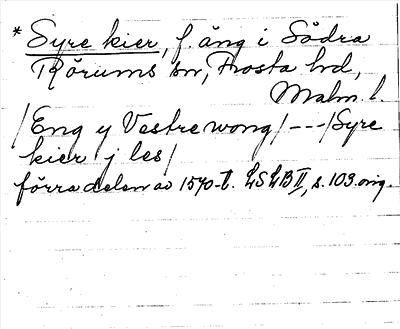 * Syre kier, f. äng i Södra
Rörums sn, Frosta hd,
Malm. l.
/Eng y Vestre wong/ --- /Syre
kier j les/
förra delen av 1570-t. LSLB II, s. 103. orig.